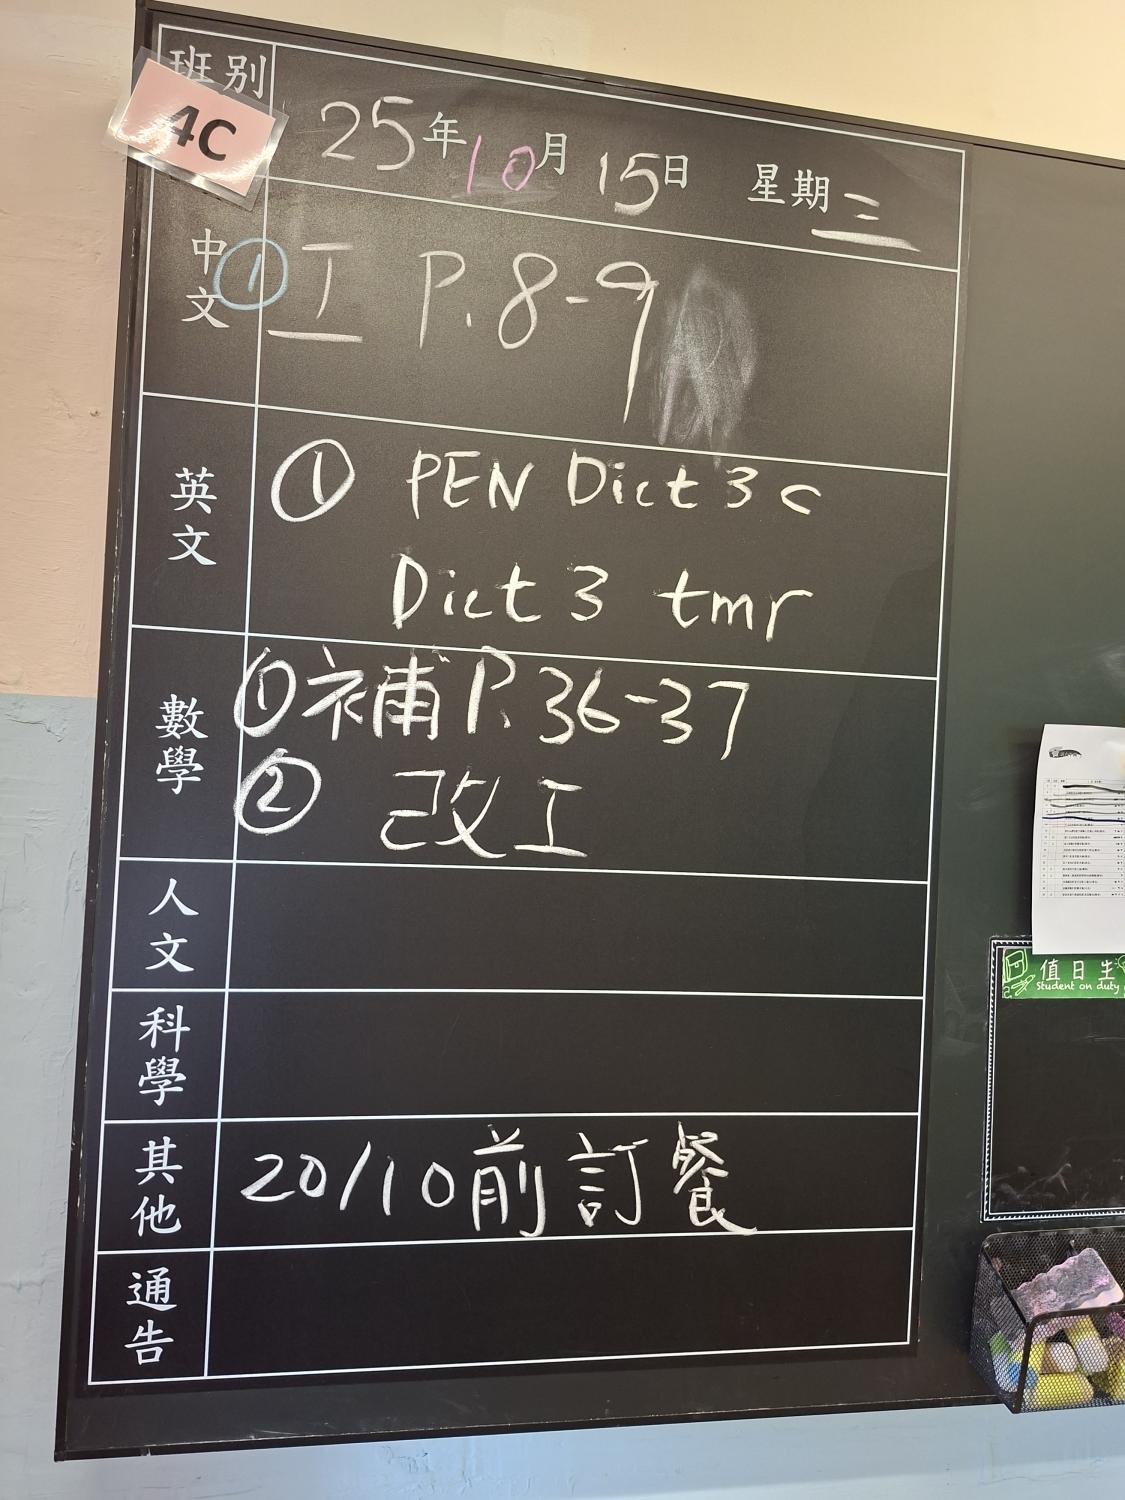 班別
4C
25年10月15日 星期三
中文
① 工 P.8-9
英文
① PEN Dict 3 c
Dict 3 tmr
數學
①補 P.36-37
② 改工
人文
科學
其他
20/10前訂餐
通告
值日生
Student on duty